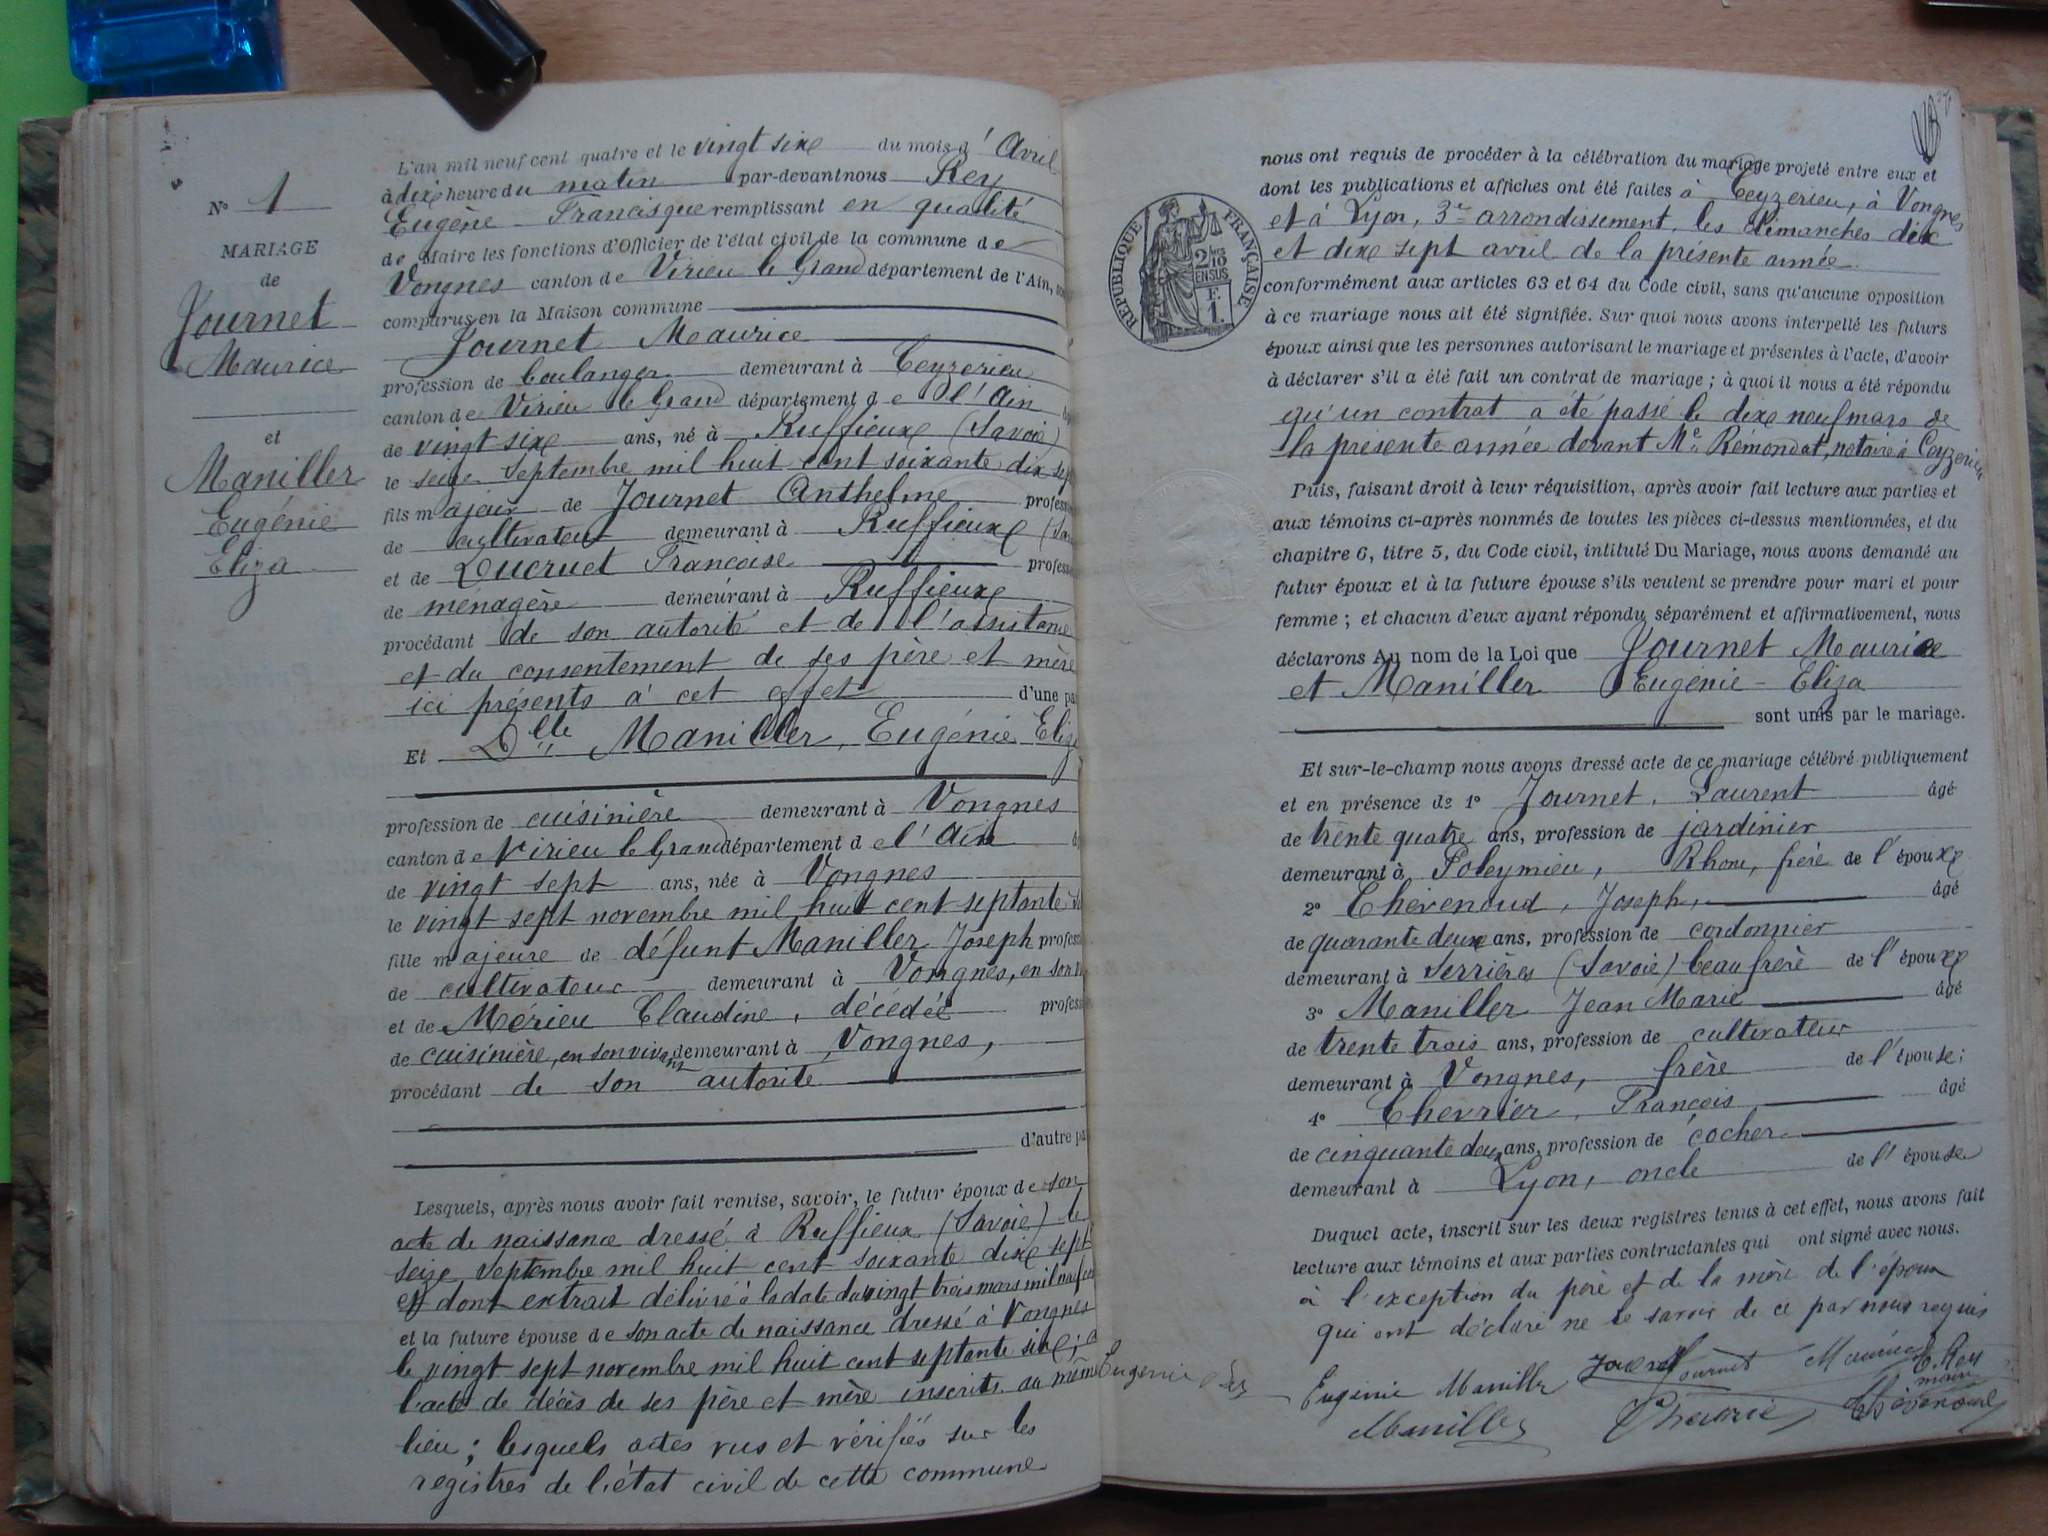 N° 1
MARIAGE
de
Journet
Maurice
et
Maniller
Eugénie
Eliza
L'an mil neuf cent quatre et le vingt six du mois d'Avril
à dix heure du matin par-devant nous Rey
Eugène Francisque remplissant en qualité
de Maire les fonctions d'Officier de l'état civil de la commune de
Vongnes canton de Virieu le Grand département de l'Ain,
comparus en la Maison commune
Journet Maurice
profession de boulanger demeurant à Ceyzerieu
canton de Virieu le Grand département de l'Ain
de vingt six ans, né à Ruffieux (Savoie)
le seize septembre mil huit cent soixante dix sept
fils majeur de Journet Anthelme profess
de cultivateur demeurant à Ruffieux (Sa
et de Ducruet Françoise profess
de ménagère demeurant à Ruffieux
procédant de son autorité et de l'assistance
et du consentement de ses père et mère
ici présents à cet effet d'une pa
Et Dlle Maniller, Eugénie Eliza
profession de cuisinière demeurant à Vongnes
canton de Virieu le Grand département de l'Ain
de vingt sept ans, née à Vongnes
le vingt sept novembre mil huit cent septante
fille majeure de défunt Maniller Joseph profess
de cultivateur demeurant à Vongnes, en son
et de Mérieu Claudine, décédée profess
de cuisinière, en son vivant demeurant à Vongnes,
procédant de son autorité
d'autre pa
Lesquels, après nous avoir fait remise, savoir, le futur époux de son
acte de naissance dressé à Ruffieux (Savoie) le
seize septembre mil huit cent soixante dix sept
et dont extrait délivré à la date du vingt trois mars mil neuf cent
et la future épouse de son acte de naissance dressé à Vongnes
le vingt sept novembre mil huit cent septante six; a
l'acte de décès de ses père et mère inscrits au même
lieu; lesquels actes vus et vérifiés sur les
registres de l'état civil de cette commune
RÉPUBLIQUE FRANÇAISE
2/10 EN SUS
F.
1.
nous ont requis de procéder à la célébration du mariage projeté entre eux et
dont les publications et affiches ont été faites à Ceyzerieu, à Vongnes
et à Lyon, 3e arrondissement, les dimanches dix
et dix sept avril de la présente année
conformément aux articles 63 et 64 du Code civil, sans qu'aucune opposition
à ce mariage nous ait été signifiée. Sur quoi nous avons interpellé les futurs
époux ainsi que les personnes autorisant le mariage et présentes à l'acte, d'avoir
à déclarer s'il a été fait un contrat de mariage; à quoi il nous a été répondu
qu'un contrat a été passé le dix neuf mars de
la présente année devant Me Remondat, notaire à Ceyzerieu
Puis, faisant droit à leur réquisition, après avoir fait lecture aux parties et
aux témoins ci-après nommés de toutes les pièces ci-dessus mentionnées, et du
chapitre 6, titre 5, du Code civil, intitulé Du Mariage, nous avons demandé au
futur époux et à la future épouse s'ils veulent se prendre pour mari et pour
femme; et chacun d'eux ayant répondu séparément et affirmativement, nous
déclarons Au nom de la Loi que Journet Maurice
et Maniller Eugénie-Eliza
sont unis par le mariage.
Et sur-le-champ nous avons dressé acte de ce mariage célébré publiquement
et en présence de 1° Journet, Laurent âgé
de trente quatre ans, profession de jardinier
demeurant à Poleymieu, Rhone, frère de l'époux
2° Thévenoud, Joseph, âgé
de quarante deux ans, profession de cordonnier
demeurant à Serrières (Savoie) beau frère de l'époux
3° Maniller Jean Marie âgé
de trente trois ans, profession de cultivateur
demeurant à Vongnes, frère de l'épouse;
4° Chevrier, François âgé
de cinquante deux ans, profession de cocher
demeurant à Lyon, oncle de l'épouse
Duquel acte, inscrit sur les deux registres tenus à cet effet, nous avons fait
lecture aux témoins et aux parties contractantes qui ont signé avec nous.
à l'exception du père et de la mère de l'époux
qui ont déclaré ne le savoir de ce par nous requis
Eugénie Maniller Journet Maurice E. Rey
maire
Maniller Chevrier Thévenoud